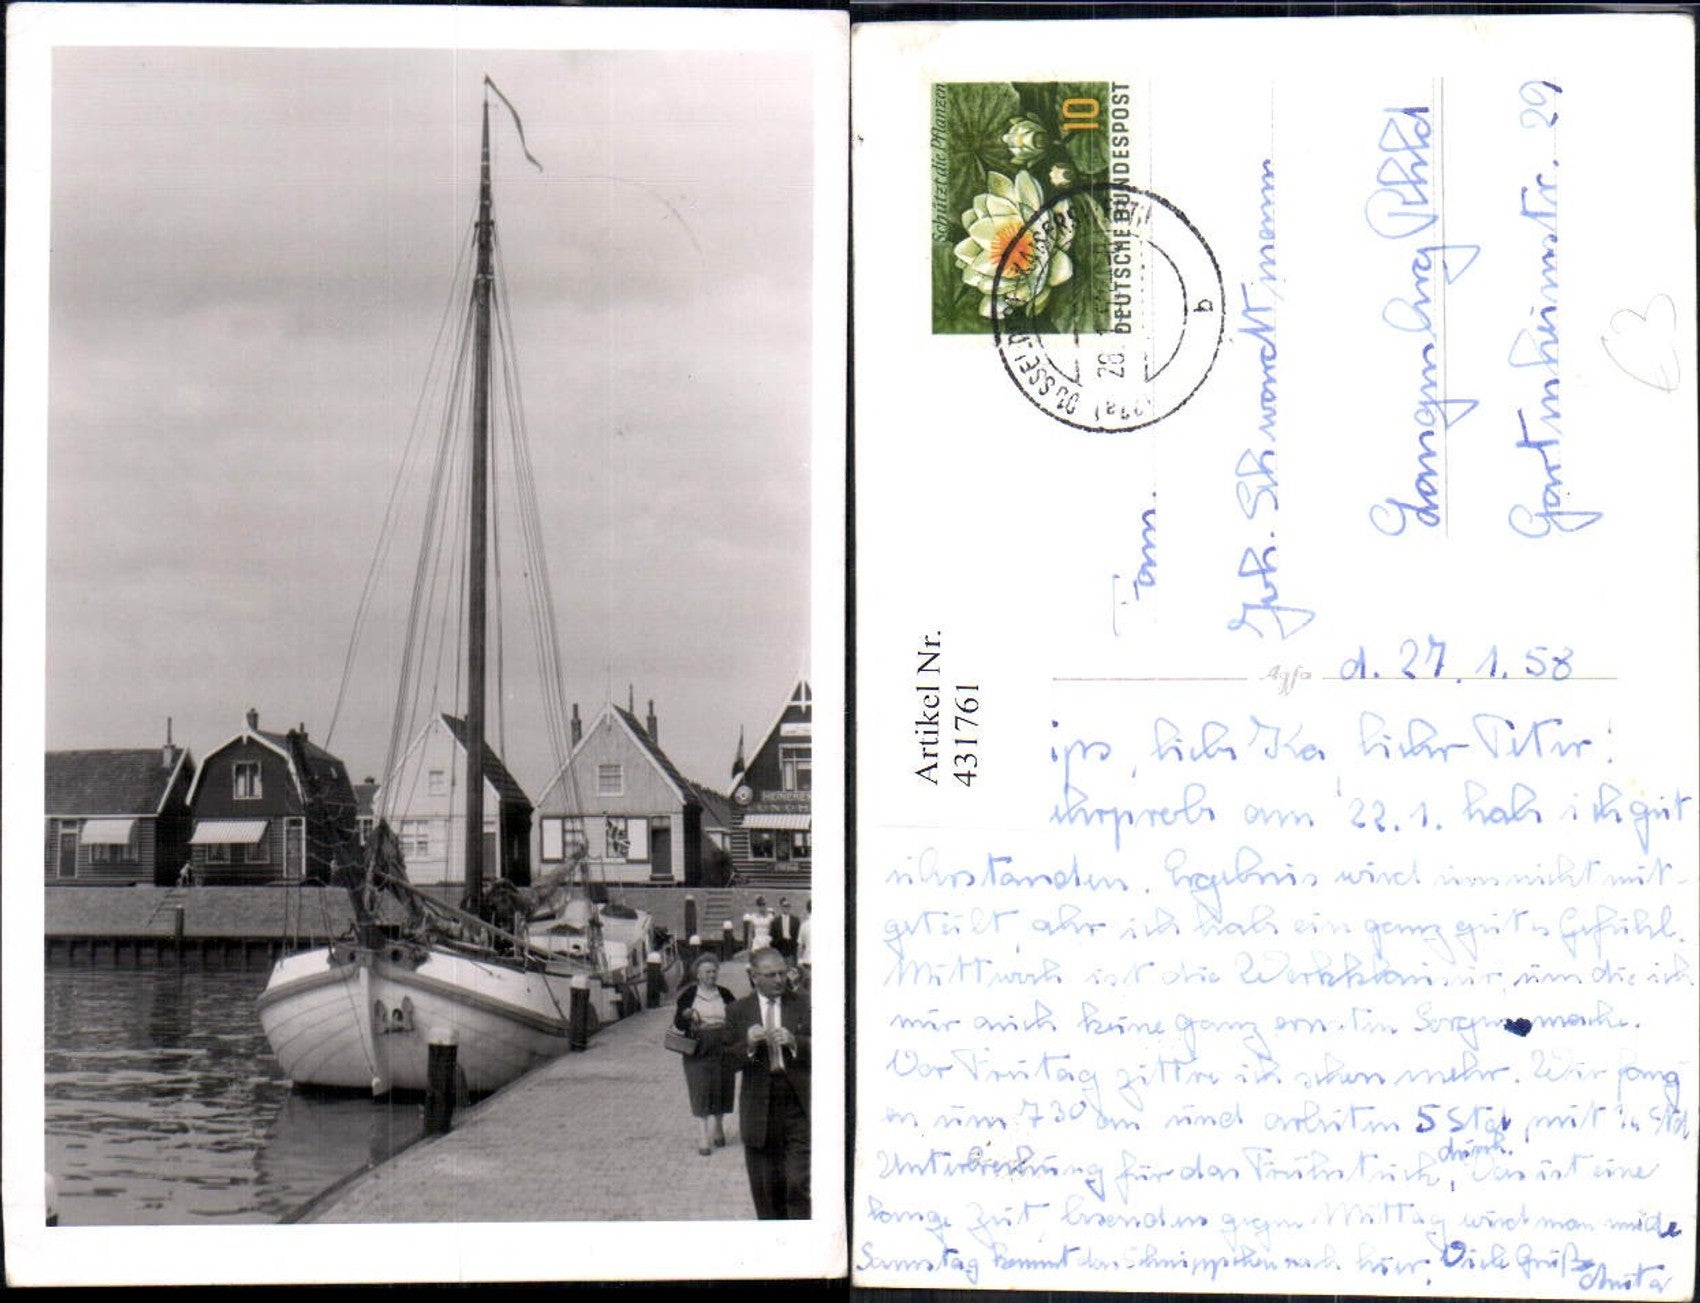 HEINEKEN
LUNCH
Schützt die Pflanzen
10
DEUTSCHE BUNDESPOST
DÜSSELDORF
28.1.
b
Artikel Nr.
431761
Fam.
Joh. Schwardtmann
Langenberg Rhld
Gartenheimstr. 29
€3
Agfa
d. 27.1.58
liebe Ka, lieber Peter!
am 22.1. habe ich gut
überstanden. Ergebnis wird uns nicht mit-
geteilt, aber ich habe ein ganz gutes Gefühl.
Mittwoch ist die Werkklausur, um die ich
mir auch keine ganz ernsten Sorgen mache.
Vor Freitag zittre ich schon mehr. Wir fang
en um 7 30 an und arbeiten 5 Std mit Std
Unterbrechung für das Frühstück durch. Das ist eine
lange Zeit, besonders gegen Mittag wird man müde
Samstag kommt das Schnippchen nach hier. Viele Grüße
Anita